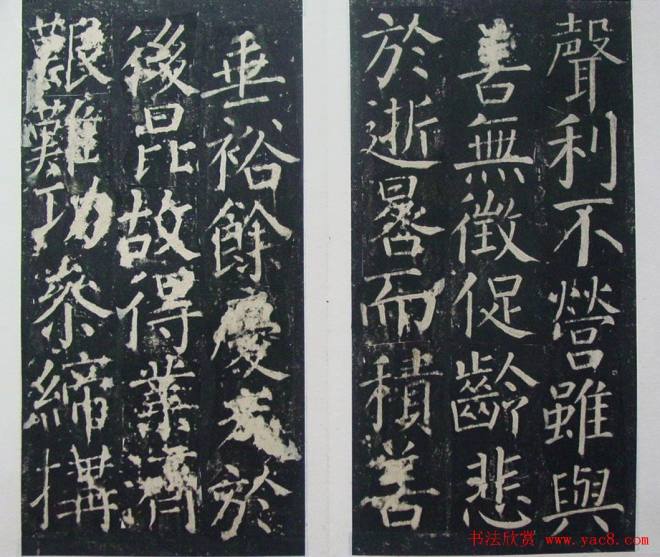 聲利不營雖與
善無徵促齡悲
於逝晷而積善
垂裕餘慶於
後昆故得業濟
艱難功參締搆
书法欣赏 www.yac8.com